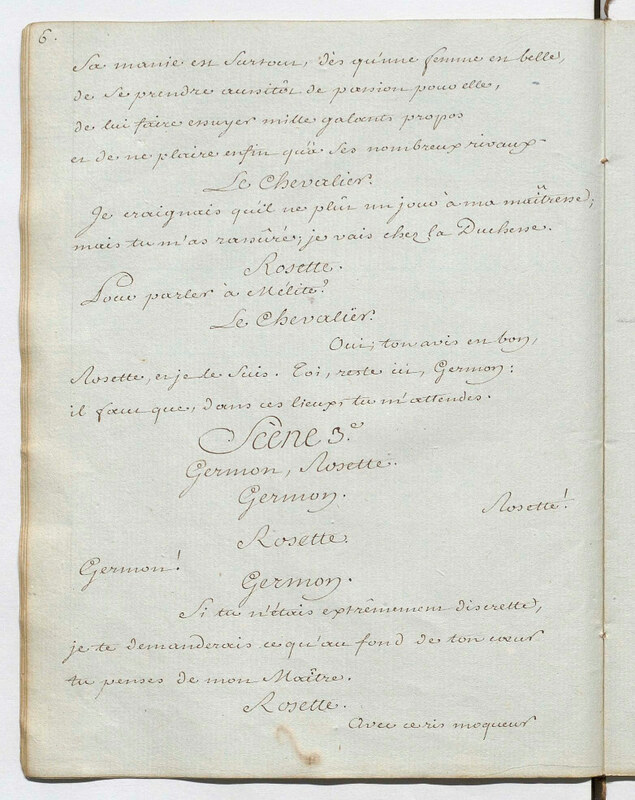 6.
Sa manie est surtout, dès qu'une femme est belle,
de se prendre aussitôt de passion pour elle,
de lui faire essuyer mille galants propos
et de ne plaire enfin qu'à ses nombreux rivaux.
Le Chevalier.
Je craignais qu'il ne plût un jour à ma maîtresse;
mais tu m'as rassuré; je vais chez la Duchesse.
Rosette.
Pour parler à Mélite?
Le Chevalier.
Oui; ton avis est bon,
Rosette, et je le suis. Toi, reste ici, Germon:
il faut que, dans ces lieux, tu m'attendes.
Scène 3.e
Germon, Rosette.
Germon.
Rosette!
Rosette.
Germon!
Germon.
Si tu n'étais extrêmement discrette,
je te demanderais ce qu'au fond de ton cœur
tu penses de mon Maître.
Rosette.
Avec ce ris moqueur